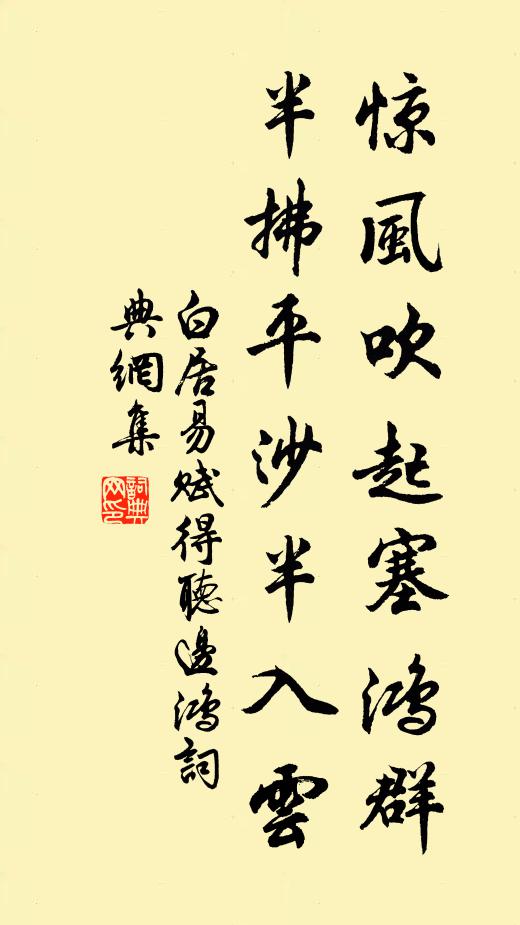 惊風吹起塞鴻群
半拂平沙半入雲
白居易賦得聽邊鴻詞
典網集
詞典網印